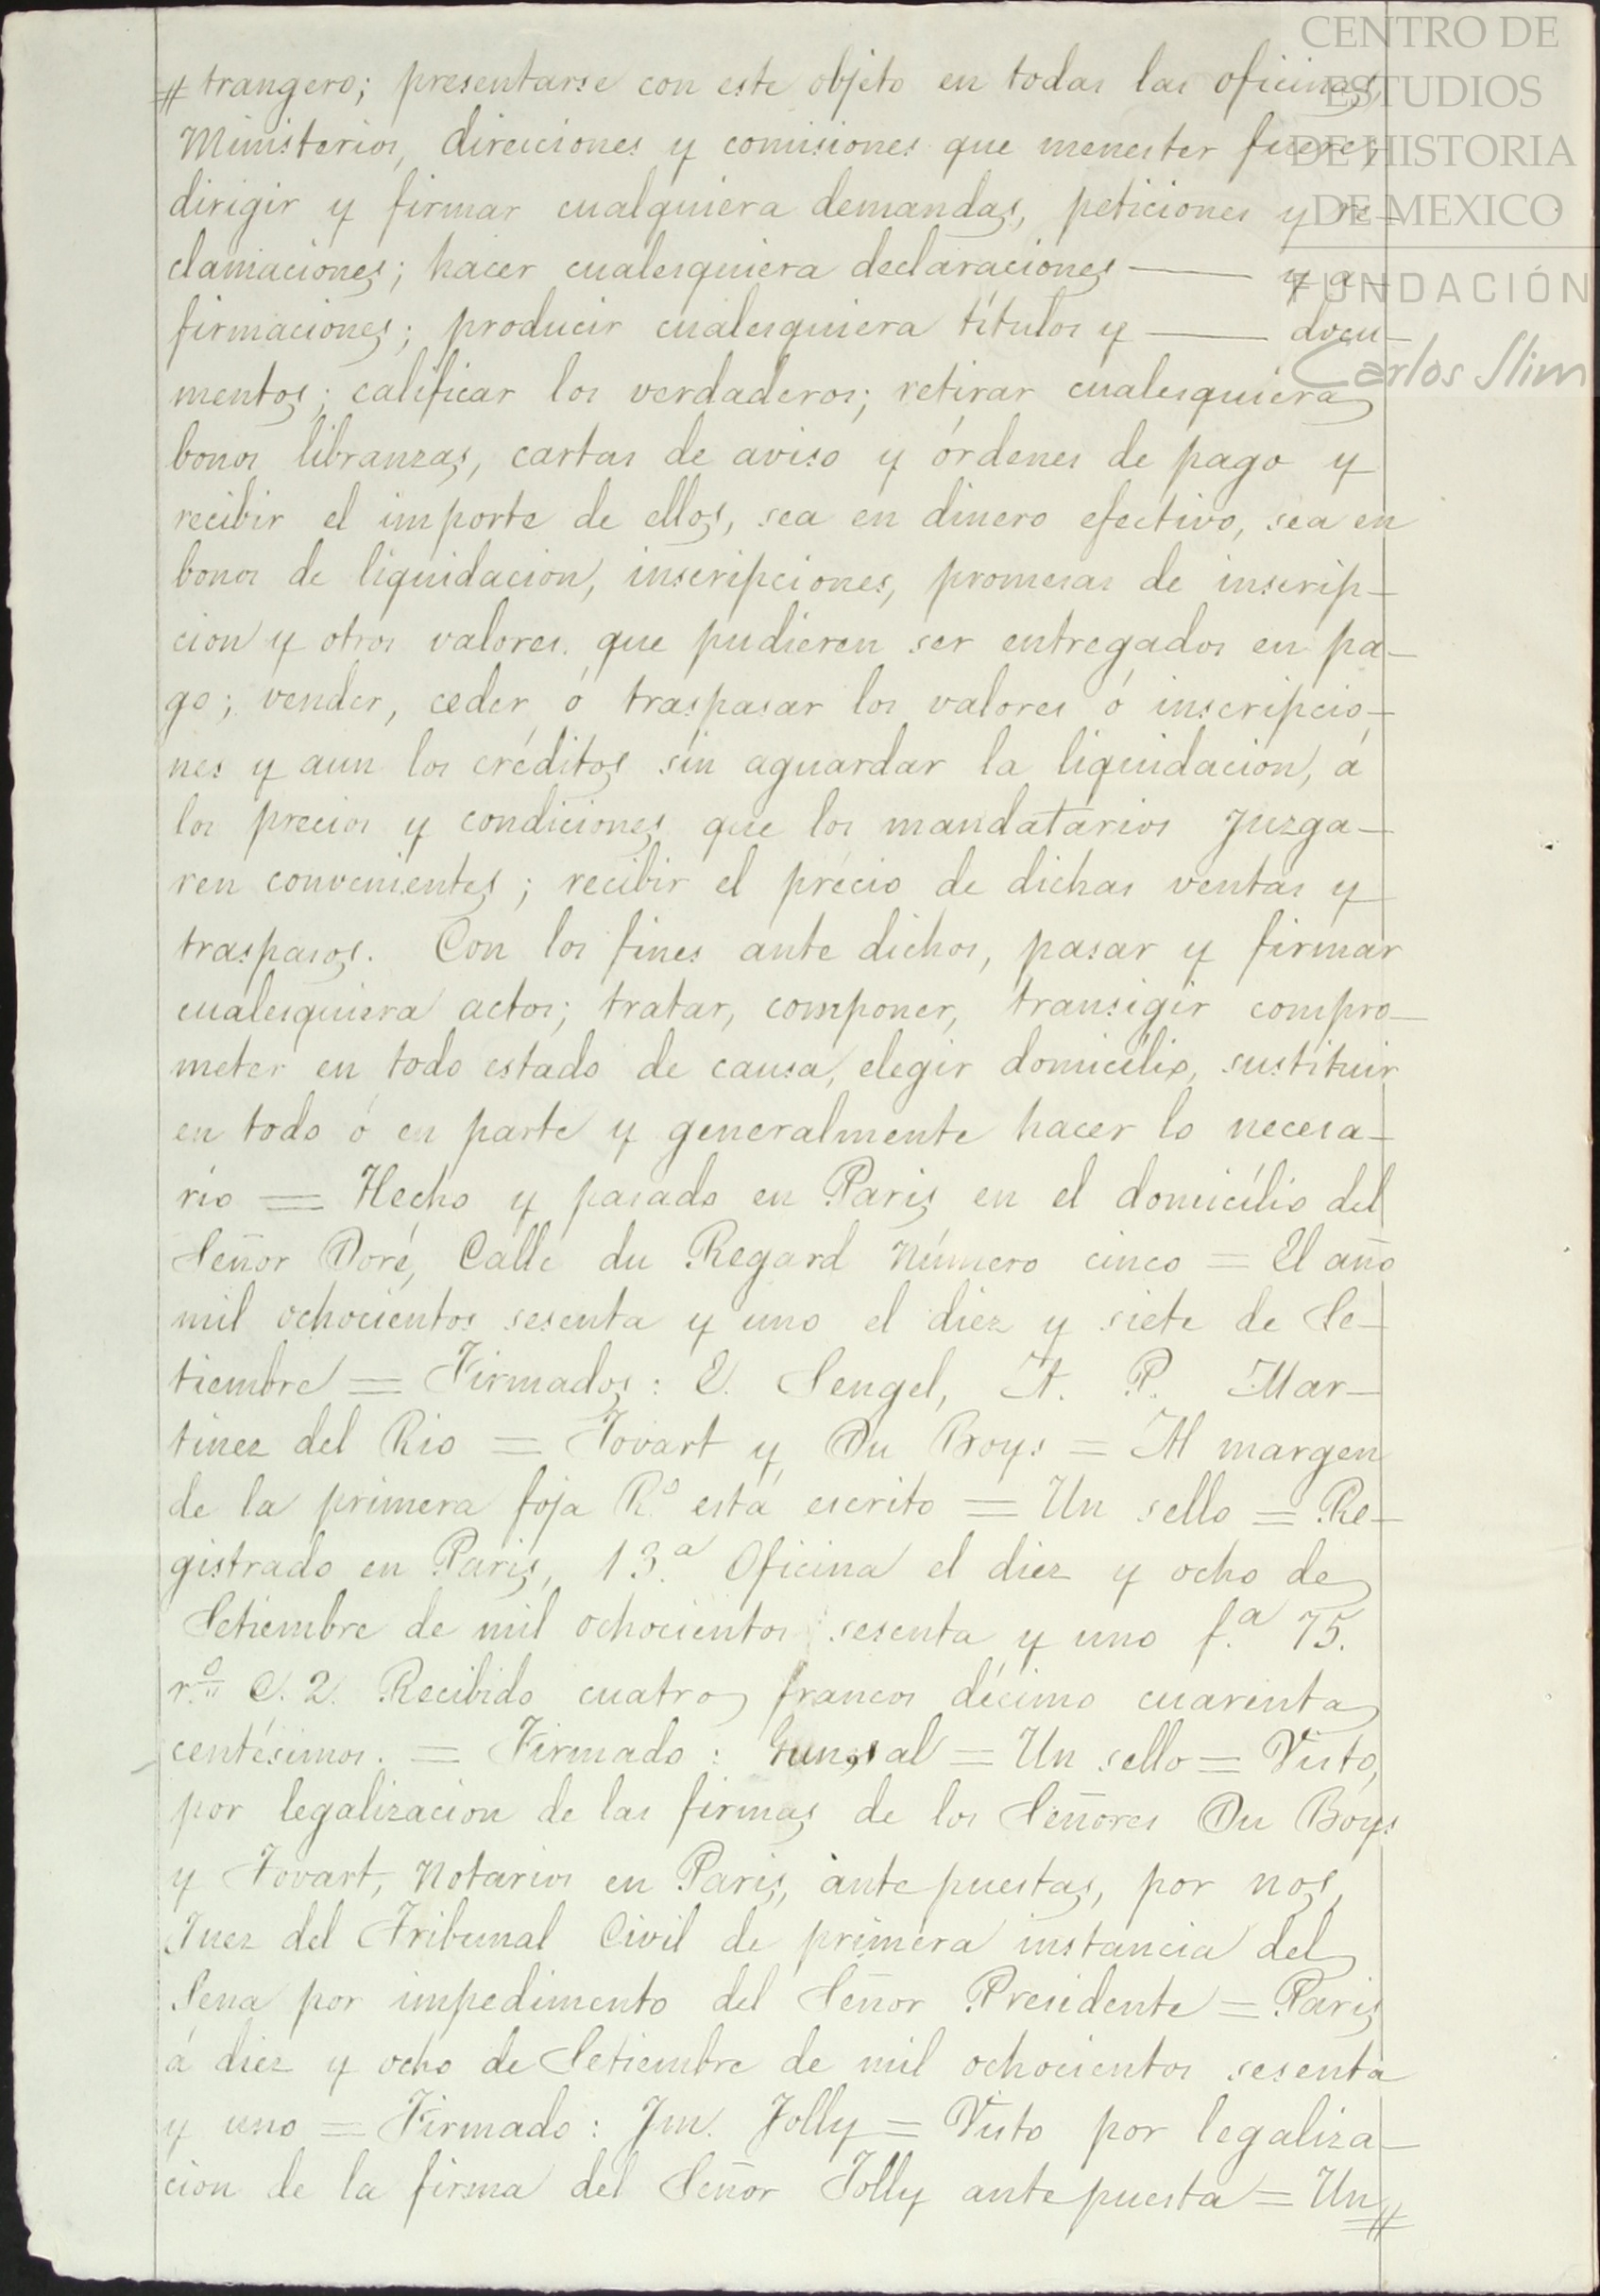 CENTRO DE
ESTUDIOS
DE HISTORIA
DE MEXICO
FUNDACIÓN
Carlos Slim
# trangero; presentarse con este objeto en todas las oficinas,
Ministerios, direcciones y comisiones que menester fuere;
dirigir y firmar cualquiera demandas, peticiones y re-
clamaciones; hacer cualesquiera declaraciones —— y a-
firmaciones; producir cualesquiera títulos y —— docu-
mentos; calificar los verdaderos; retirar cualesquiera
bonos libranzas, cartas de aviso y órdenes de pago y
recibir el importe de ellos, sea en dinero efectivo, sea en
bonos de liquidacion, inscripciones, promesas de inscrip-
cion y otros valores que pudieren ser entregados en pa-
go; vender, ceder ó traspasar los valores ó inscripcio-
nes y aun los créditos sin aguardar la liquidacion, á
los precios y condiciones que los mandatarios juzga-
ren convenientes; recibir el précio de dichas ventas y
traspasos. Con los fines ante dichos, pasar y firmar
cualesquiera actos; tratar, componer, transigir compro-
meter en todo estado de causa, elegir domicilio, sustituir
en todo ó en parte y generalmente hacer lo necesa-
rio = Hecho y pasado en Paris en el domicílio del
Señor Doré, Calle du Regard Número cinco = El año
mil ochocientos sesenta y uno el diez y siete de Se-
tiembre = Firmados: E. Sengel, A. P. Mar-
tinez del Rio = Tovart y Du Boys = Al margen
de la primera foja R.º está escrito = Un sello = Re-
gistrado en Paris, 13.ª Oficina el diez y ocho de
Setiembre de mil ochocientos sesenta y uno f.ª 75.
r.º C. 2. Recibido cuatro francos décimo cuarenta
centésimos. = Firmado: = Un sello = Visto,
por legalizacion de las firmas de los Señores Du Boys
y Tovart, Notarios en Paris, ante puestas, por nos,
Juez del Tribunal Civil de primera instancia del
Sena por impedimento del Señor Presidente = Paris
á diez y ocho de Setiembre de mil ochocientos sesenta
y uno = Firmado: Jm. Jolly = Visto por legaliza-
cion de la firma del Señor Jolly ante puesta = Un #